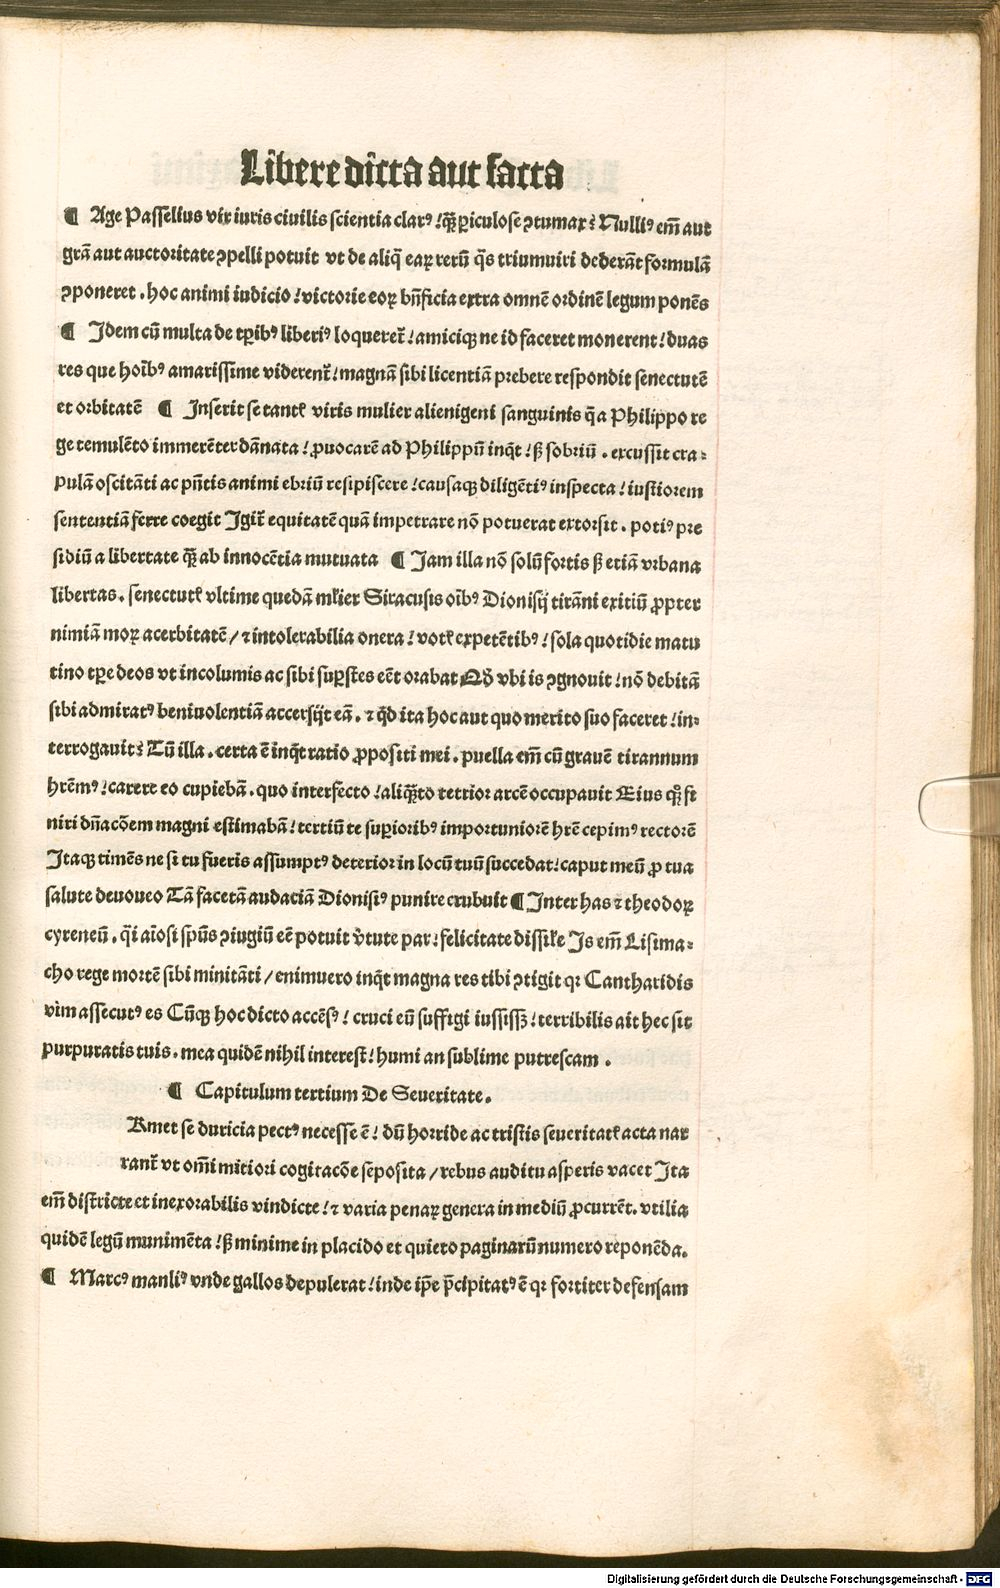 Libere dicta aut facta
¶ Age Passelius vir iuris ciuilis scientia clarꝰ/ꝙ̃ ꝑiculose ꝯtumax? Nulliꝰ em̄ aut
gr̄a aut auctoritate ꝯpelli potuit vt de aliq̄ eaꝝ rerū q̄s triumuiri dederāt formulā
ꝯponeret. hoc animi iudicio/victorie eoꝝ bn̄ficia extra omnē ordinē legum ponēs
¶ Idem cū multa de tꝑibꝰ liberiꝰ loquereť/amiciqꝫ ne id faceret monerent/duas
res que hoībꝰ amarissime viderenť/magnā sibi licentiā prebere respondit senectutē
et orbitatē ¶ Inserit se tantꝭ viris mulier alienigeni sanguinis q̄ a Philippo re
ge temulēto immerēter dānata/ꝓuocarē ad Philippū inq̄t/sꝫ sobriū. excussit cra⸗
pulā oscitāti ac pn̄tis animi ebriū resipiscere/causaqꝫ diligētiꝰ inspecta/iustiorem
sententiā ferre coegit Igiť equitatē quā impetrare nō potuerat extorsit. potiꝰ pre
sidiū a libertate ꝙ̃ ab innocētia mutuata ¶ Jam illa nō solū fortis sꝫ etiā vrbana
libertas. senectutꝭ vltime quedā mł'ier Siracusis oībꝰ Dionisij tirāni exitiū ꝓpter
nimiā moꝝ acerbitatē/⁊ intolerabilia onera/votꝭ expetētibꝰ/sola quotidie matu
tino tꝑe deos vt incolumis ac sibi suꝑstes eēt orabat Qđ vbi is ꝯgnouit/nō debitā
sibi admiratꝰ beniuolentiā accersijt eā. ⁊ qđ ita hoc aut quo merito suo faceret/in⸗
terrogauit? Tū illa. certa ē inq̄t ratio ꝓpositi mei. puella em̄ cū grauē tirannum
hrēmꝰ/carere eo cupiebā. quo interfecto/aliqꝙ̃to tetrior arcē occupauit Eius qꝫ fi
niri dn̄acōem magni estimabā/tertiū te suꝑioribꝰ importuniorē hrē cepimꝰ rectorē
Itaqꝫ timēs ne si tu fueris assumptꝰ deterior in locū tuū succedat/caput meū ꝓ tua
salute deuoueo Tā facetā audaciā Dionisiꝰ punire erubuit ¶ Inter has ⁊ theodoꝝ
cyreneū. q̄i aīosi spūs ꝯiugiū eē potuit v̄tute par/felicitate dissił'e Is em̄ Lisima⸗
cho rege mortē sibi minitāti/enimuero inq̄t magna res tibi ꝯtigit qꝛ Cantharidis
vim assecutꝰ es Cūqꝫ hoc dicto accēsꝰ/cruci eū suffigi iussissꝫ/terribilis ait hec sit
purpuratis tuis. mea quidē nihil interest/humi an sublime putrescam.
¶ Capitulum tertium De Seueritate.
Armet se duricia pectꝰ necesse ē/dū horride ac tristis seueritatꝭ acta nar
ranť vt omī mitiori cogitacōe seposita/rebus auditu asperis vacet Ita
em̄ districte et inexorabilis vindicte/⁊ varia penaꝝ genera in mediū ꝓcurrēt. vtilia
quidē legū munimēta/sꝫ minime in placido et quieto paginarū numero reponēda.
¶ Marcꝰ manliꝰ vnde gallos depulerat/inde ip̄e p̄cipitatꝰ ē qꝛ fortiter defensam
Digitalisierung gefördert durch die Deutsche Forschungsgemeinschaft - DFG